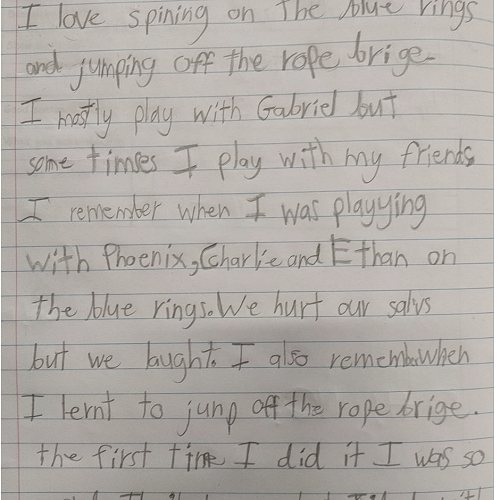 I love spining on The blue rings
and jumping off the rope brige.
I mostly play with Gabriel but
some timses I play with my friends
I remember when I was playying
with Phoenix, Charlie and Ethan on
the blue rings. We hurt our salvs
but we laught. I also remember when
I lernt to junp off the rope brige.
the first time I did it I was so